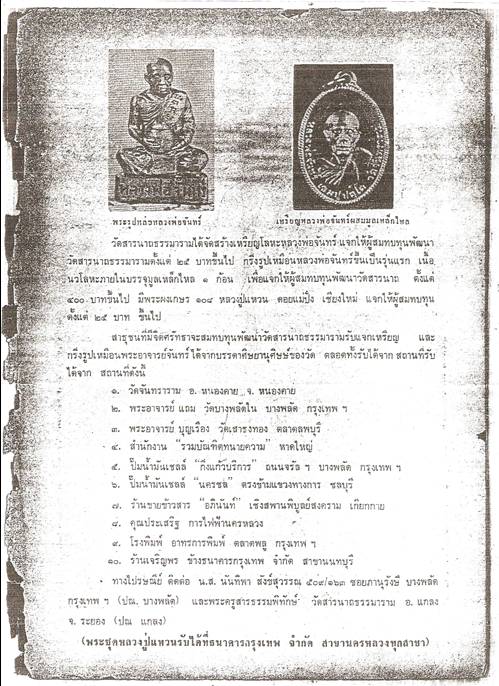 พระรูปหล่อหลวงพ่อจันทร์
เหรียญหลวงพ่อจันทร์ผสมมูลเหล็กไหล
วัดสารนาถธรรมารามได้จัดสร้างเหรียญโลหะหลวงพ่อจันทร์ แจกให้ผู้สมทบทุนพัฒนา
วัดสารนาถธรรมารามตั้งแต่ ๒๕ บาทขึ้นไป กริ่งรูปเหมือนหลวงพ่อจันทร์ขึ้นเป็นรุ่นแรก เนื้อ
นวโลหะภายในบรรจุมูลเหล็กไหล ๑ ก้อน เพื่อแจกให้ผู้สมทบทุนพัฒนาวัดสารนาถ ตั้งแต่
๕๐๐ บาทขึ้นไป มีพระผงเกษร ๑๐๘ หลวงปู่แหวน ดอยแม่ปั๋ง เชียงใหม่ แจกให้ผู้สมทบทุน
ตั้งแต่ ๒๕ บาท ขึ้นไป
สาธุชนที่มีจิตศรัทธาจะสมทบทุนพัฒนาวัดสารนาถธรรมารามรับแจกเหรียญ และ
กริ่งรูปเหมือนพระอาจารย์จันทร์ ได้จากบรรดาศิษยานุศิษย์ของวัด ตลอดทั้งรับได้จาก สถานที่รับ
ได้จาก สถานที่ดังนี้
๑. วัดจันทราราม อ. หนองคาย จ. หนองคาย
๒. พระอาจารย์ แถม วัดบางพลัดใน บางพลัด กรุงเทพ ฯ
๓. พระอาจารย์ บุญเรือง วัดเสาธงทอง ตลาดลพบุรี
๔. สำนักงาน "รวมบัณฑิตทนายความ" หาดใหญ่
๕. ปั๊มน้ำมันเชลล์ "กิ่งแก้วบริการ" ถนนจรัล ฯ บางพลัด กรุงเทพ ฯ
๖. ปั๊มน้ำมันเชลล์ "นครชล" ตรงข้ามแขวงทางการ ชลบุรี
๗. ร้านขายข้าวสาร "อภินันท์" เชิงสพานพิบูลย์สงคราม เกียกกาย
๘. คุณประเสริฐ การไฟฟ้านครหลวง
๙. โรงพิมพ์ อาทรการพิมพ์ ตลาดพลู กรุงเทพ ฯ
๑๐. ร้านเจริญพร ข้างธนาคารกรุงเทพ จำกัด สาขานนทบุรี
ทางไปรษณีย์ ติดต่อ น.ส. นันทิพา สังข์สุวรรณ ๕๐๙/๑๖๓ ซอยภาณุรังษี บางพลัด
กรุงเทพ ฯ (ปณ. บางพลัด) และพระครูสารธรรมพิทักษ์ วัดสารนาถธรรมาราม อ. แกลง
จ. ระยอง (ปณ แกลง)
(พระชุดหลวงปู่แหวนรับได้ที่ธนาคารกรุงเทพ จำกัด สาขานครหลวงทุกสาขา)